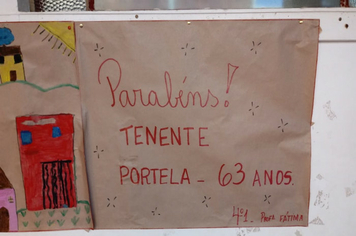 Parabéns!
TENENTE
PORTELA - 63 ANOS.
4º1. Profa FÁTIMA